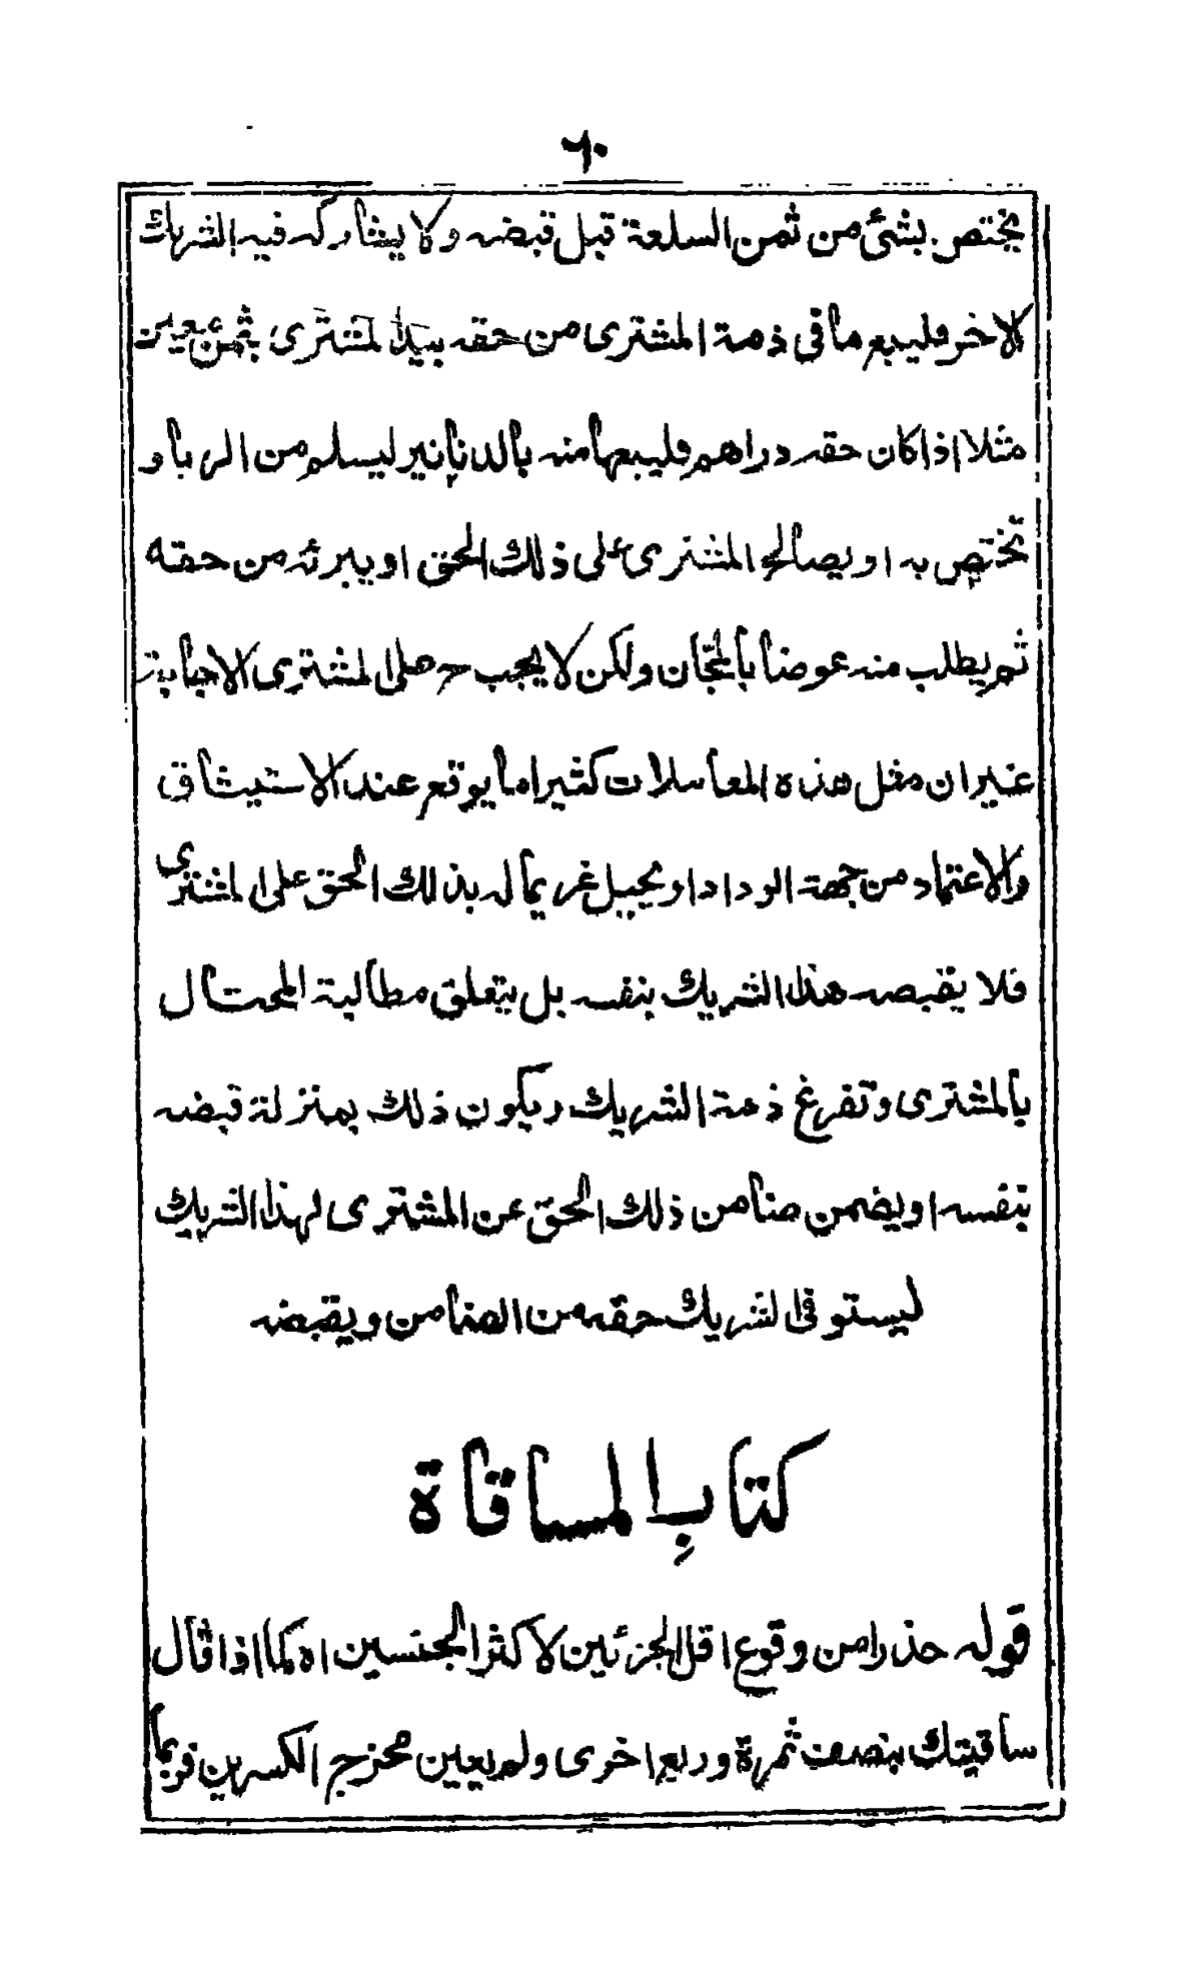 ٦٠
يختص بشئ من ثمن السلعة قبل قبضه ولا يشاركه فيه الشريك
الاخر فليبع ما في ذمة المشتري من حقه بيد المشتري بثمن معين
مثلا اذا كان حقه دراهم فليبعها منه بالدنانير ليسلم من الربا و
تختص به او يصالح المشتري على ذلك الحق او يبرئه من حقه
ثم يطلب منه عوضا بالمجّان ولكن لا يجب ح على المشتري الاجابة
غير ان مثل هذه المعاملات كثيرا ما يوقع عند الاستيثاق
والاعتماد من جهة الوداد او يحيل غريما له بذلك الحق على المشتري
فلا يقبضه هذا الشريك بنفسه بل يتعلق مطالبة المحتال
بالمشتري وتفرغ ذمة الشريك ويكون ذلك بمنزلة قبضه
بنفسه او يضمن ضامن ذلك الحق عن المشتري لهذا الشريك
ليستوفي الشريك حقه من الضامن ويقبضه
كتابِ المساقاة
قوله حذرا من وقوع اقل الجزئين لاكثر الجنسين اه كما اذا قال
ساقيتك بنصف ثمرة وربع اخرى ولم يعين مخرج الكسرين فربما